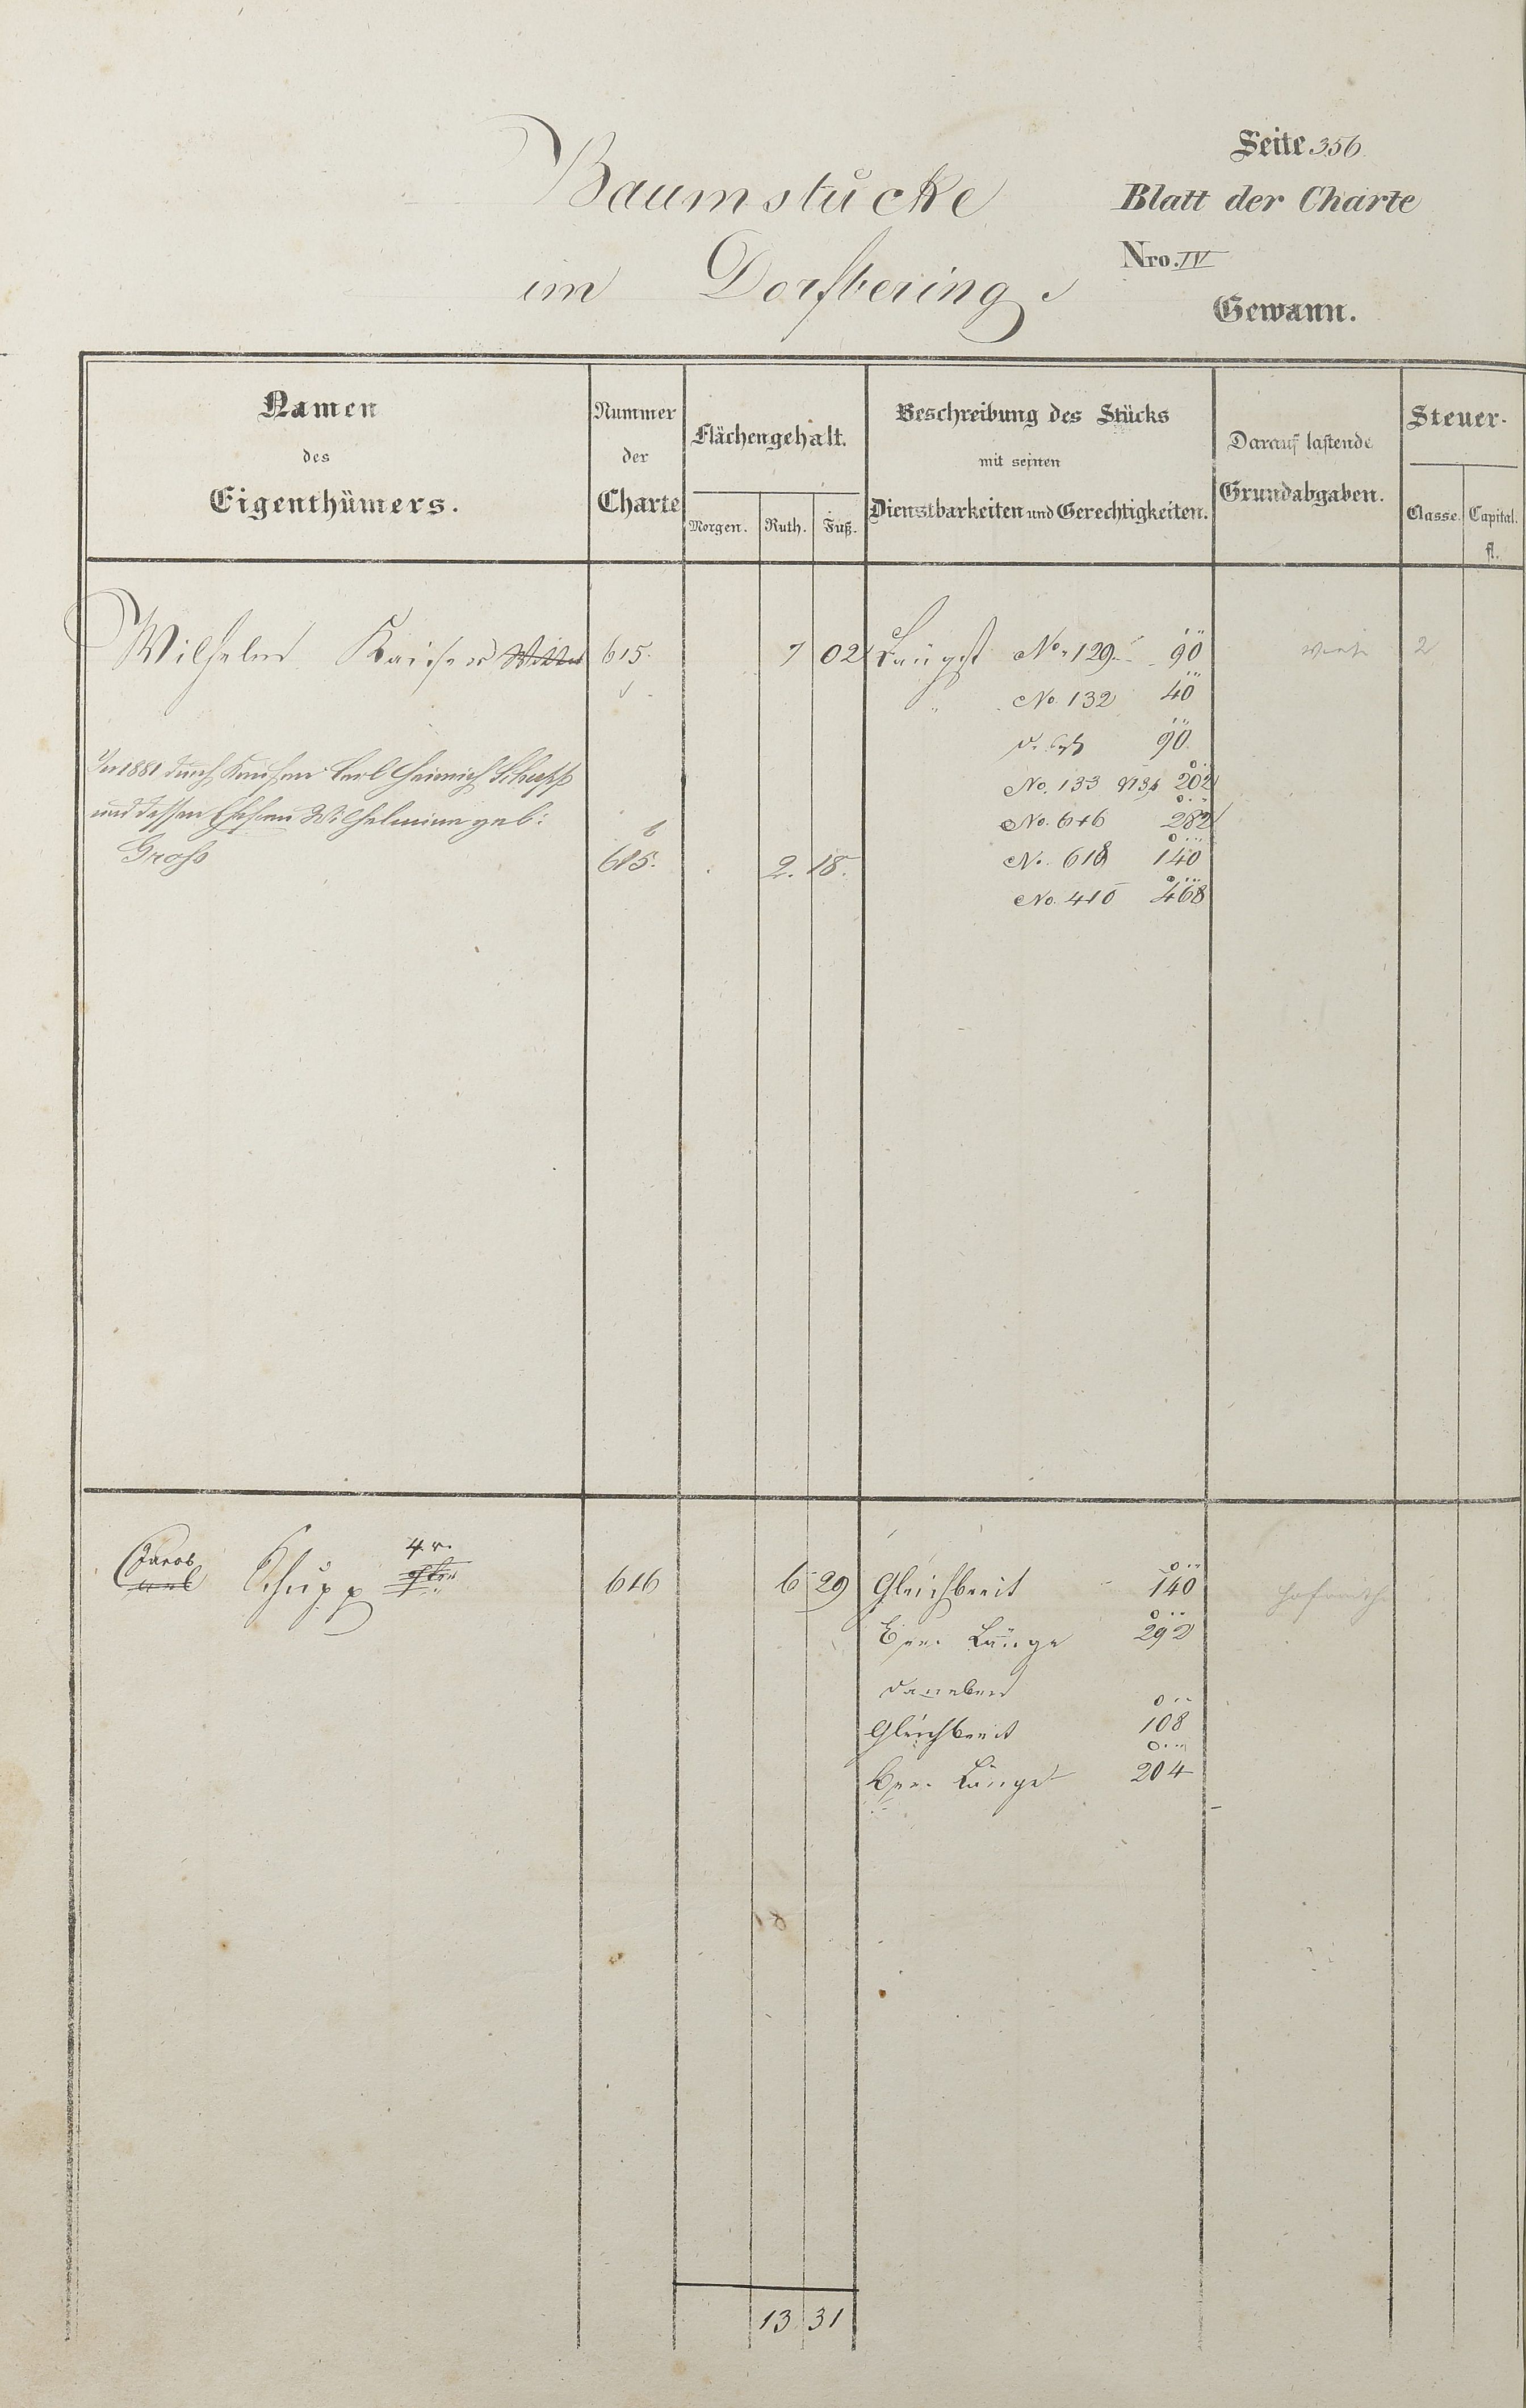 Seite 356
Baumstücke
Blatt der Charte
im Dorfbering
Nro. IV
Gewann.
Namen
des
Eigenthümers.
Nummer
der
Charte
Flächengehalt.
Morgen. Ruth. Fuß.
Beschreibung des Stücks
mit seinen
Dienstbarkeiten und Gerechtigkeiten.
Darauf lastende
Grundabgaben.
Steuer-
Classe. Capital.
fl.
Wilhelm Kaiser 615. 7 02 Längst No. 129 90 2
" No. 132 40
90
In 1881 durch Kaufen Carl Heinrich Schupp
No. 133 202
und dessen Ehefrau Wilhelmine geb:
No. 616 282
Groß
b
615. 2. 18.
No. 618 140
No. 410 468
Jacob Schupp 4r. 616 6 29 Gleichbreit 140
Länge 292
daneben
Gleichbreit 108
Länge 204
13 31